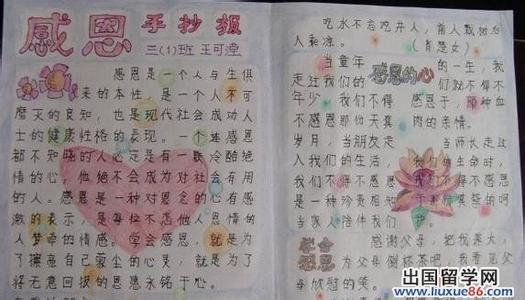 感恩 手抄报
三(1)班 王可滢
感恩是一个人与生俱
来的本性,是一个人不可
磨灭的良知,也是现代社会成功人
士的健康性格的表现。一个连感恩
都不知晓的人必定是有一颗冷酷绝
情的心,他绝不会成为对社会有用
的人。感恩是一种对恩惠的心有感
激的表示,是每位不忘他人恩情的
人梦牵的情感。学会感恩,就是为了
了擦亮自己蒙尘的心灵,就是为了
将无意回报的恩惠永铭于心。
吃水不忘吃井人,前人栽树后
人乘凉。
感恩的心
当童年 的一生,我
走过我们的 们就不得不
年少,我们不得 感恩于,那种血
不感恩那份天真 肉的亲情。
岁月,当朋友走 当师长走过
入我们的生活, 我们的生命时,
我们不得不感恩 我们不得不感恩
是一种珍贵相
当家人陪伴我们
学会感恩
感谢父母,把我养大,
为父母倒杯茶吧,我要尽
出国留学网
www.liuxue86.com